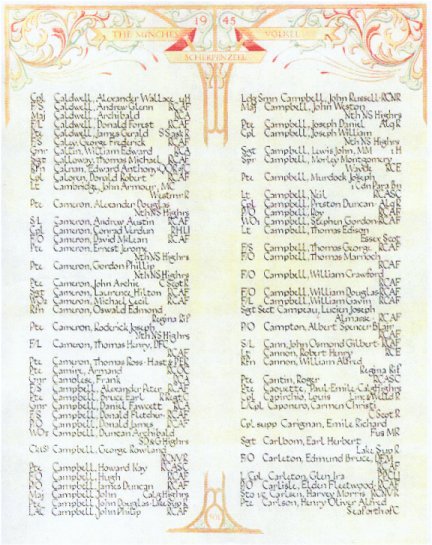 1945
THE NIJNCHES
VOLKEL
SCHERPENZEEL
Cpl Caldwell, Alexander Wallace LH
F/S Caldwell, Andrew Glenn RCAF
Maj Caldwell, Archibald RCA
F/O Caldwell, Donald Forest RCAF
Pte Caldwell, James Gerald S Sask R
F/S Caley, George Frederick RCAF
Gnr William Edward RCA
Sgt Calloway, Thomas Michael RCAF
Rfn Edward Anthony QOR
F/O Donald Robert RCAF
Lt Cambridge, John Armour, MC
Westmr R
Pte Cameron, Alexander Douglas
Nth NS Highrs
S/L Cameron, Andrew Austin RCAF
Cpl Cameron, Conrad Verdun RHLI
F/O Cameron, David McLean RCAF
Pte Cameron, Ernest Jerome
Nth NS Highrs
Pte Cameron, Gordon Phillip
Nth NS Highrs
Pte Cameron, John Archie C Scot R
Sgt Cameron, Laurence Hilton RCAF
WO2 Cameron, Michael Cecil RCAF
Rfn Cameron, Oswald Edmond
Regina Rif
Pte Cameron, Roderick Joseph
Nth NS Highrs
F/L Cameron, Thomas Henry, DFC
RCAF
Pte Cameron, Thomas Ross Hast & PER
Pte Armand
Gnr Camolese, Frank RCA
F/S Campbell, Alexander Peter RCAF
Pte Campbell, Bruce Earl R Regt C
Gnr Campbell, Daniel Fawcett RCA
F/S Campbell, Donald Fletcher RCAF
F/O Campbell, Donald James RCAF
WO2 Campbell, Duncan Archibald
SD&G Highrs
Campbell, George Rowland
RCNVR
Pte Campbell, Howard Kay RCASC
F/O Campbell, Hugh RCAF
F/O Campbell, James Duncan RCAF
Maj Campbell, John Calg Highrs
Pte Campbell, John Douglas Lake Sup R
LAC Campbell, John Philip RCAF
Ldg Smn Campbell, John Russell RCNR
Maj Campbell, John Weston
Nth NS Highrs
Pte Campbell, Joseph Daniel Alq R
Cpl Campbell, Joseph William
Nth NS Highrs
Sgt Campbell, Lewis John, MM LH
Spr Campbell, Morley Montgomery
RCE
Pte Campbell, Murdock Joseph
1 Can Para Bn
Lt Campbell, Neil RCASC
Cpl Campbell, Preston Duncan Alq R
P/O Campbell, Roy RCAF
WO2 Campbell, Stephen Gordon RCAF
Lt Campbell, Thomas Edison
Essex Scot
F/S Campbell, Thomas George RCAF
F/O Campbell, Thomas Marrioch
RCAF
F/O Campbell, William Crawford
RCAF
F/O Campbell, William Douglas RCAF
F/L Campbell, William Gavin RCAF
Sgt Campeau, Lucien Joseph
Almasse RCAF
P/O Campton, Albert Spencer Blair
RCAF
S/L Cann, John Osmond Gilbert RCAF
Lt Cannon, Robert Henry RCE
Rfn Cannon, William Alfred
Regina Rif
Pte Cantin, Roger RCASC
Pte Caouette, Paul Emile Calg Highrs
Cpl Capirchio, Louis Linc & Welld R
L/Cpl Caponero, Carmen Christi
C Scot R
Cpl Carignan, Emile Richard
Fus MR
Sgt Carlbom, Earl Herbert
Lake Sup R
F/O Carleton, Edmund Bruce, DFM
RCAF
L/Cpl Carleton, Glen Ira PPCLI
P/O Carlisle, Elden Fleetwood RCAF
Carlsen, Harvey Morris RCNVR
Pte Carlson, Henry Oliver Alfred
Seaforth of C